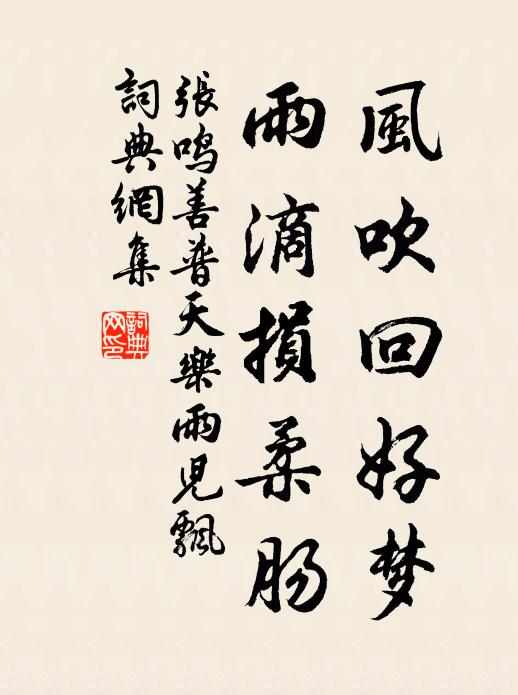 風吹回好梦
雨滴損柔肠
張鳴善普天樂雨兒飄
詞典網集
詞典網印